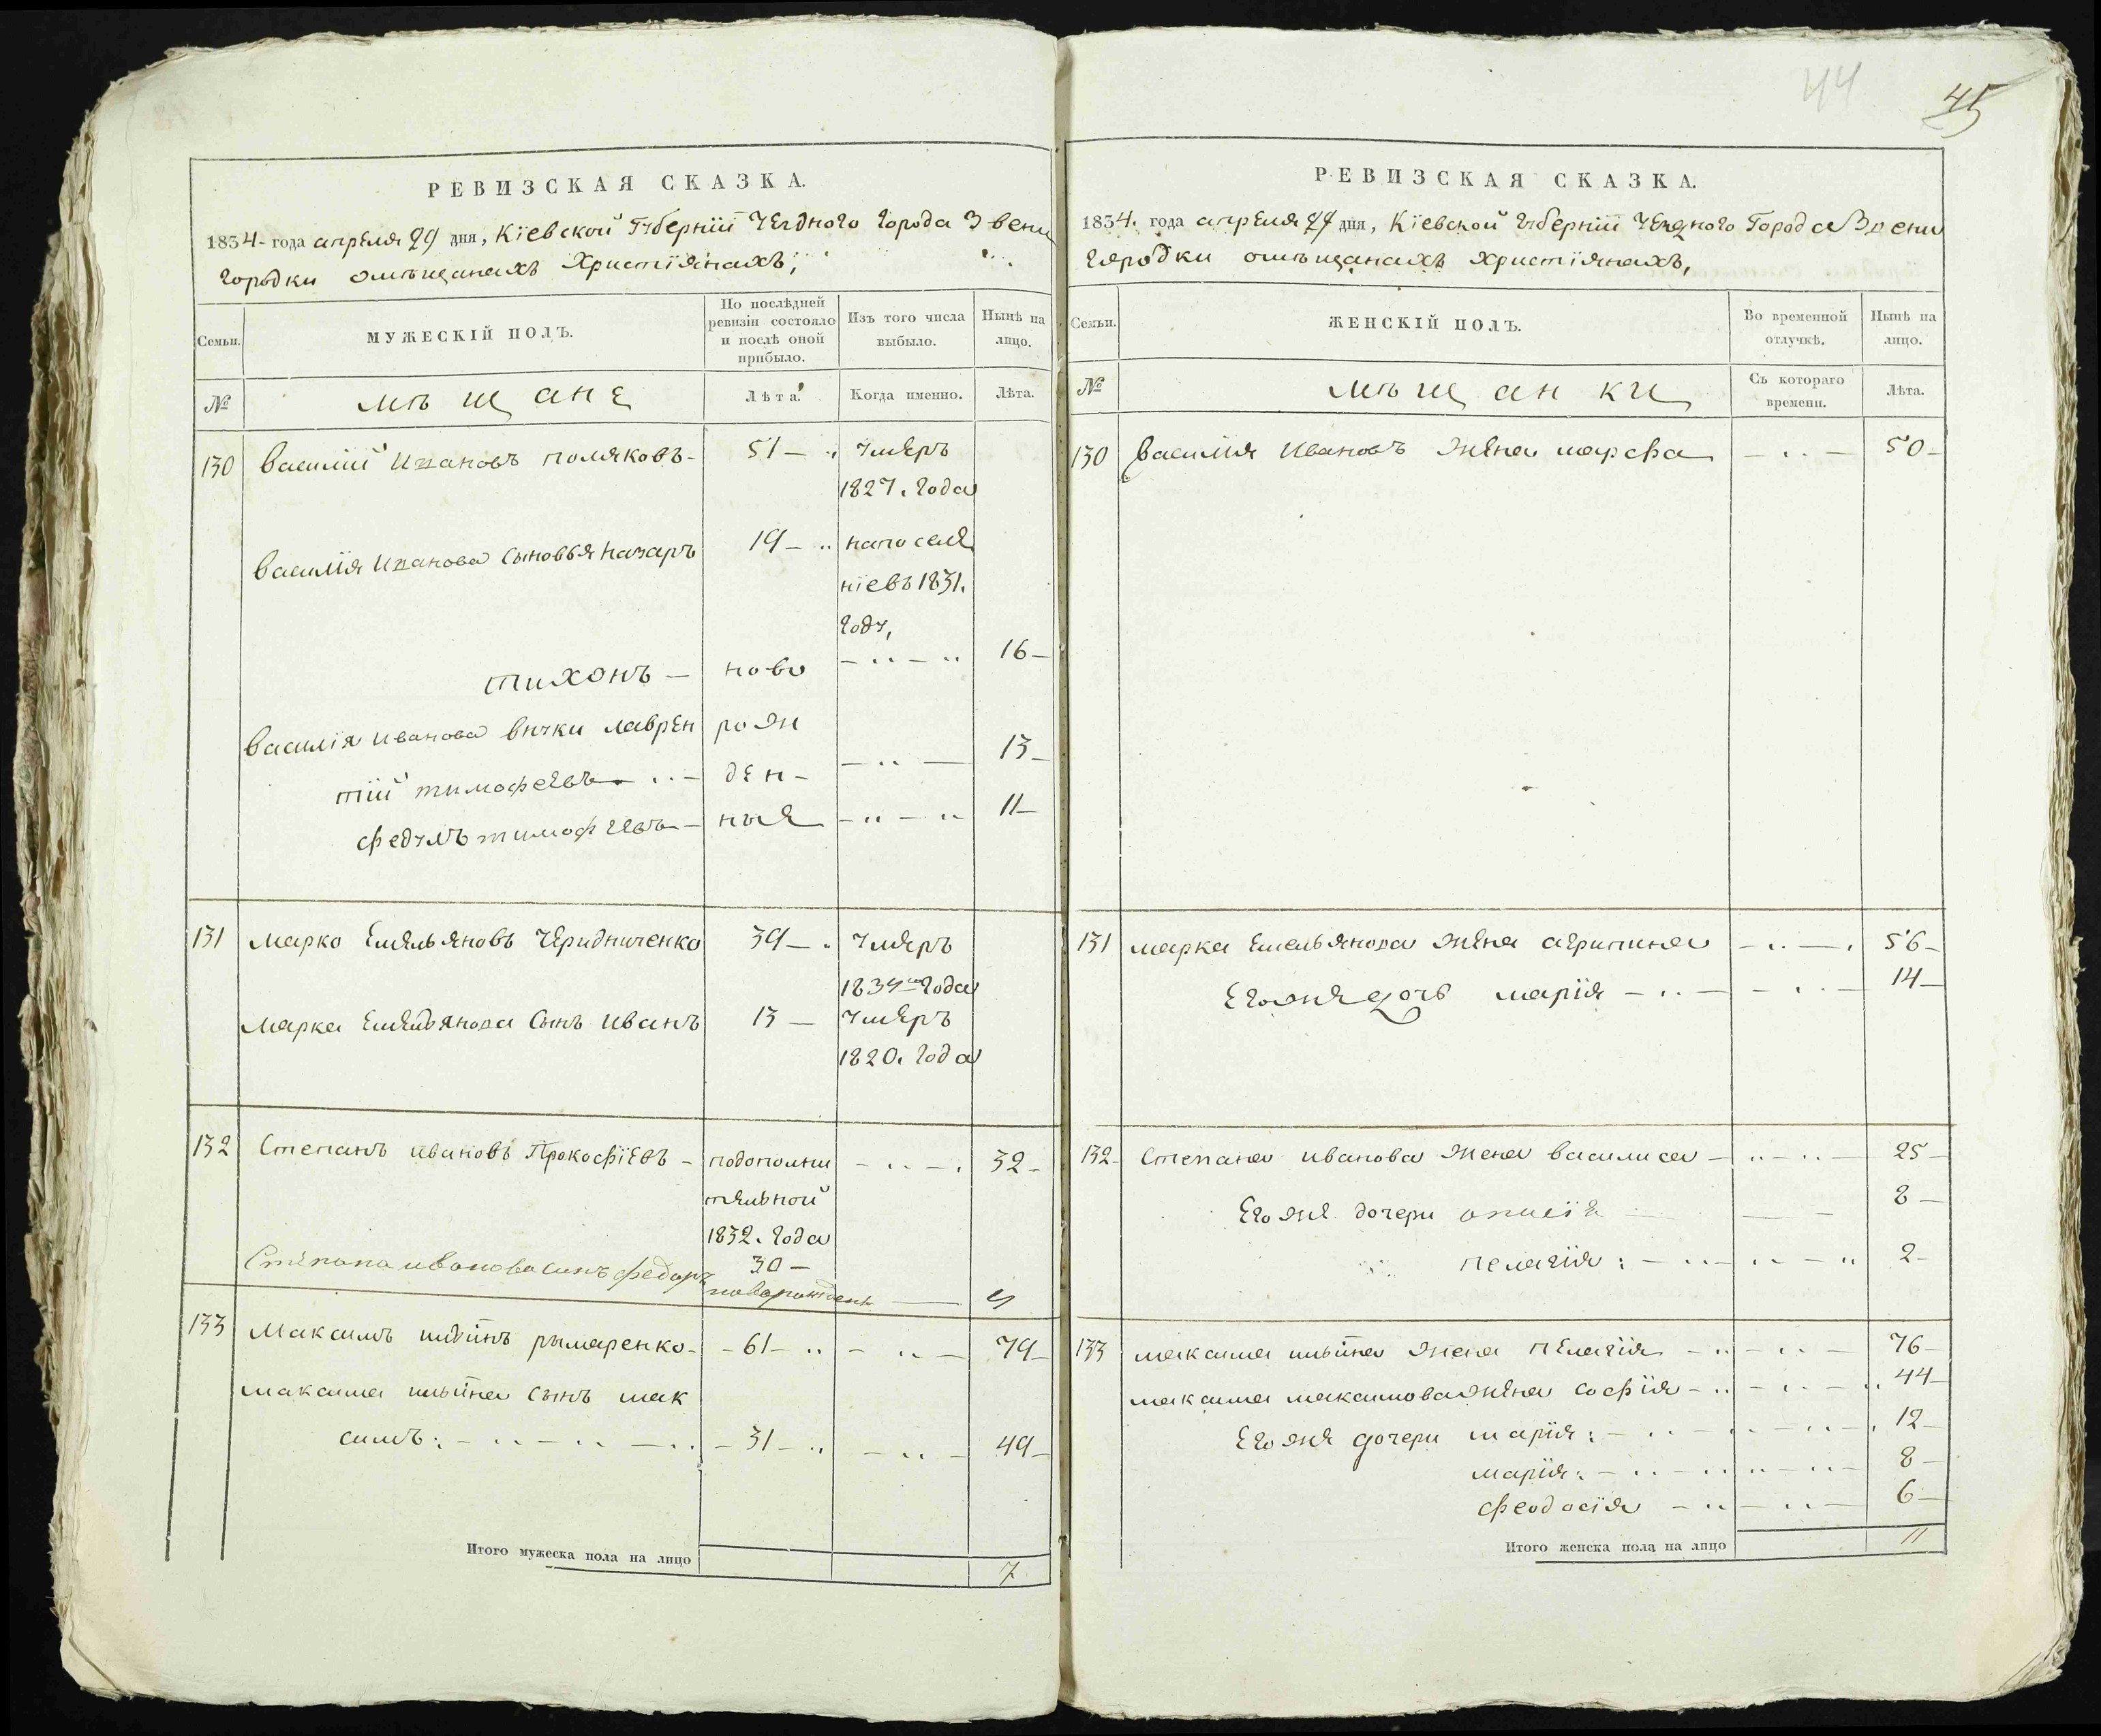 44
45
РЕВИЗСКАЯ СКАЗКА.
1834 года апреля 29 дня, Кіевской Губерніи Уезднаго Города Звени
городки омѣщанахъ Християнахъ;
Семьи.
МУЖЕСКІЙ ПОЛЪ.
По послѣдней ревизіи состояло и послѣ оной прибыло.
Изъ того числа выбыло.
Нынѣ на лицо.
№
мѣщане
Лѣта.
Когда именно.
Лѣта.
130 Василій Ивановъ Поляковъ 51 умеръ
1827. года
Василія Иванова сыновья Назаръ 19 на поселе
ніе въ 1831.
году,
Тихонъ ново 16
Василія Иванова внуки Лаврен рож 13
тій Тимофеевъ ден
Федулъ Тимофеевъ ные 11
131 Марко Емельяновъ Чередниченко 39 умеръ
года
Марка Емельянова сынъ Иванъ 13 умеръ
1820. года
132 Степанъ Ивановъ Прокофіевъ подополни 32
тельной
1832. года
30
Степана Иванова синъ Федоръ новорожден
133 Максимъ Рымаренко 61 79
Максима сынъ Мак
симъ 31 49
Итого мужеска пола на лицо 7
РЕВИЗСКАЯ СКАЗКА.
1834. года апреля 29 дня, Кіевской Губерніи Уезднаго Города Звени
городки омѣщанахъ християнахъ,
Семьи.
ЖЕНСКІЙ ПОЛЪ.
Во временной отлучкѣ.
Нынѣ на лицо.
№
мѣщанки
Съ котораго времени.
Лѣта.
130 Василія Ивановъ жена Марфа 50
131 Марка Емельянова жена Агрипина 56
Егоже дочь Марія 14
132 Степана Иванова жена Василиса 25
Егоже дочери 8
Пелагія 2
133 Максима жена Пелагія 76
Максима Максимова жена Софія 44
Егоже дочери Марія 12
Марія 8
Феодосія 6
Итого женска пола на лицо 11